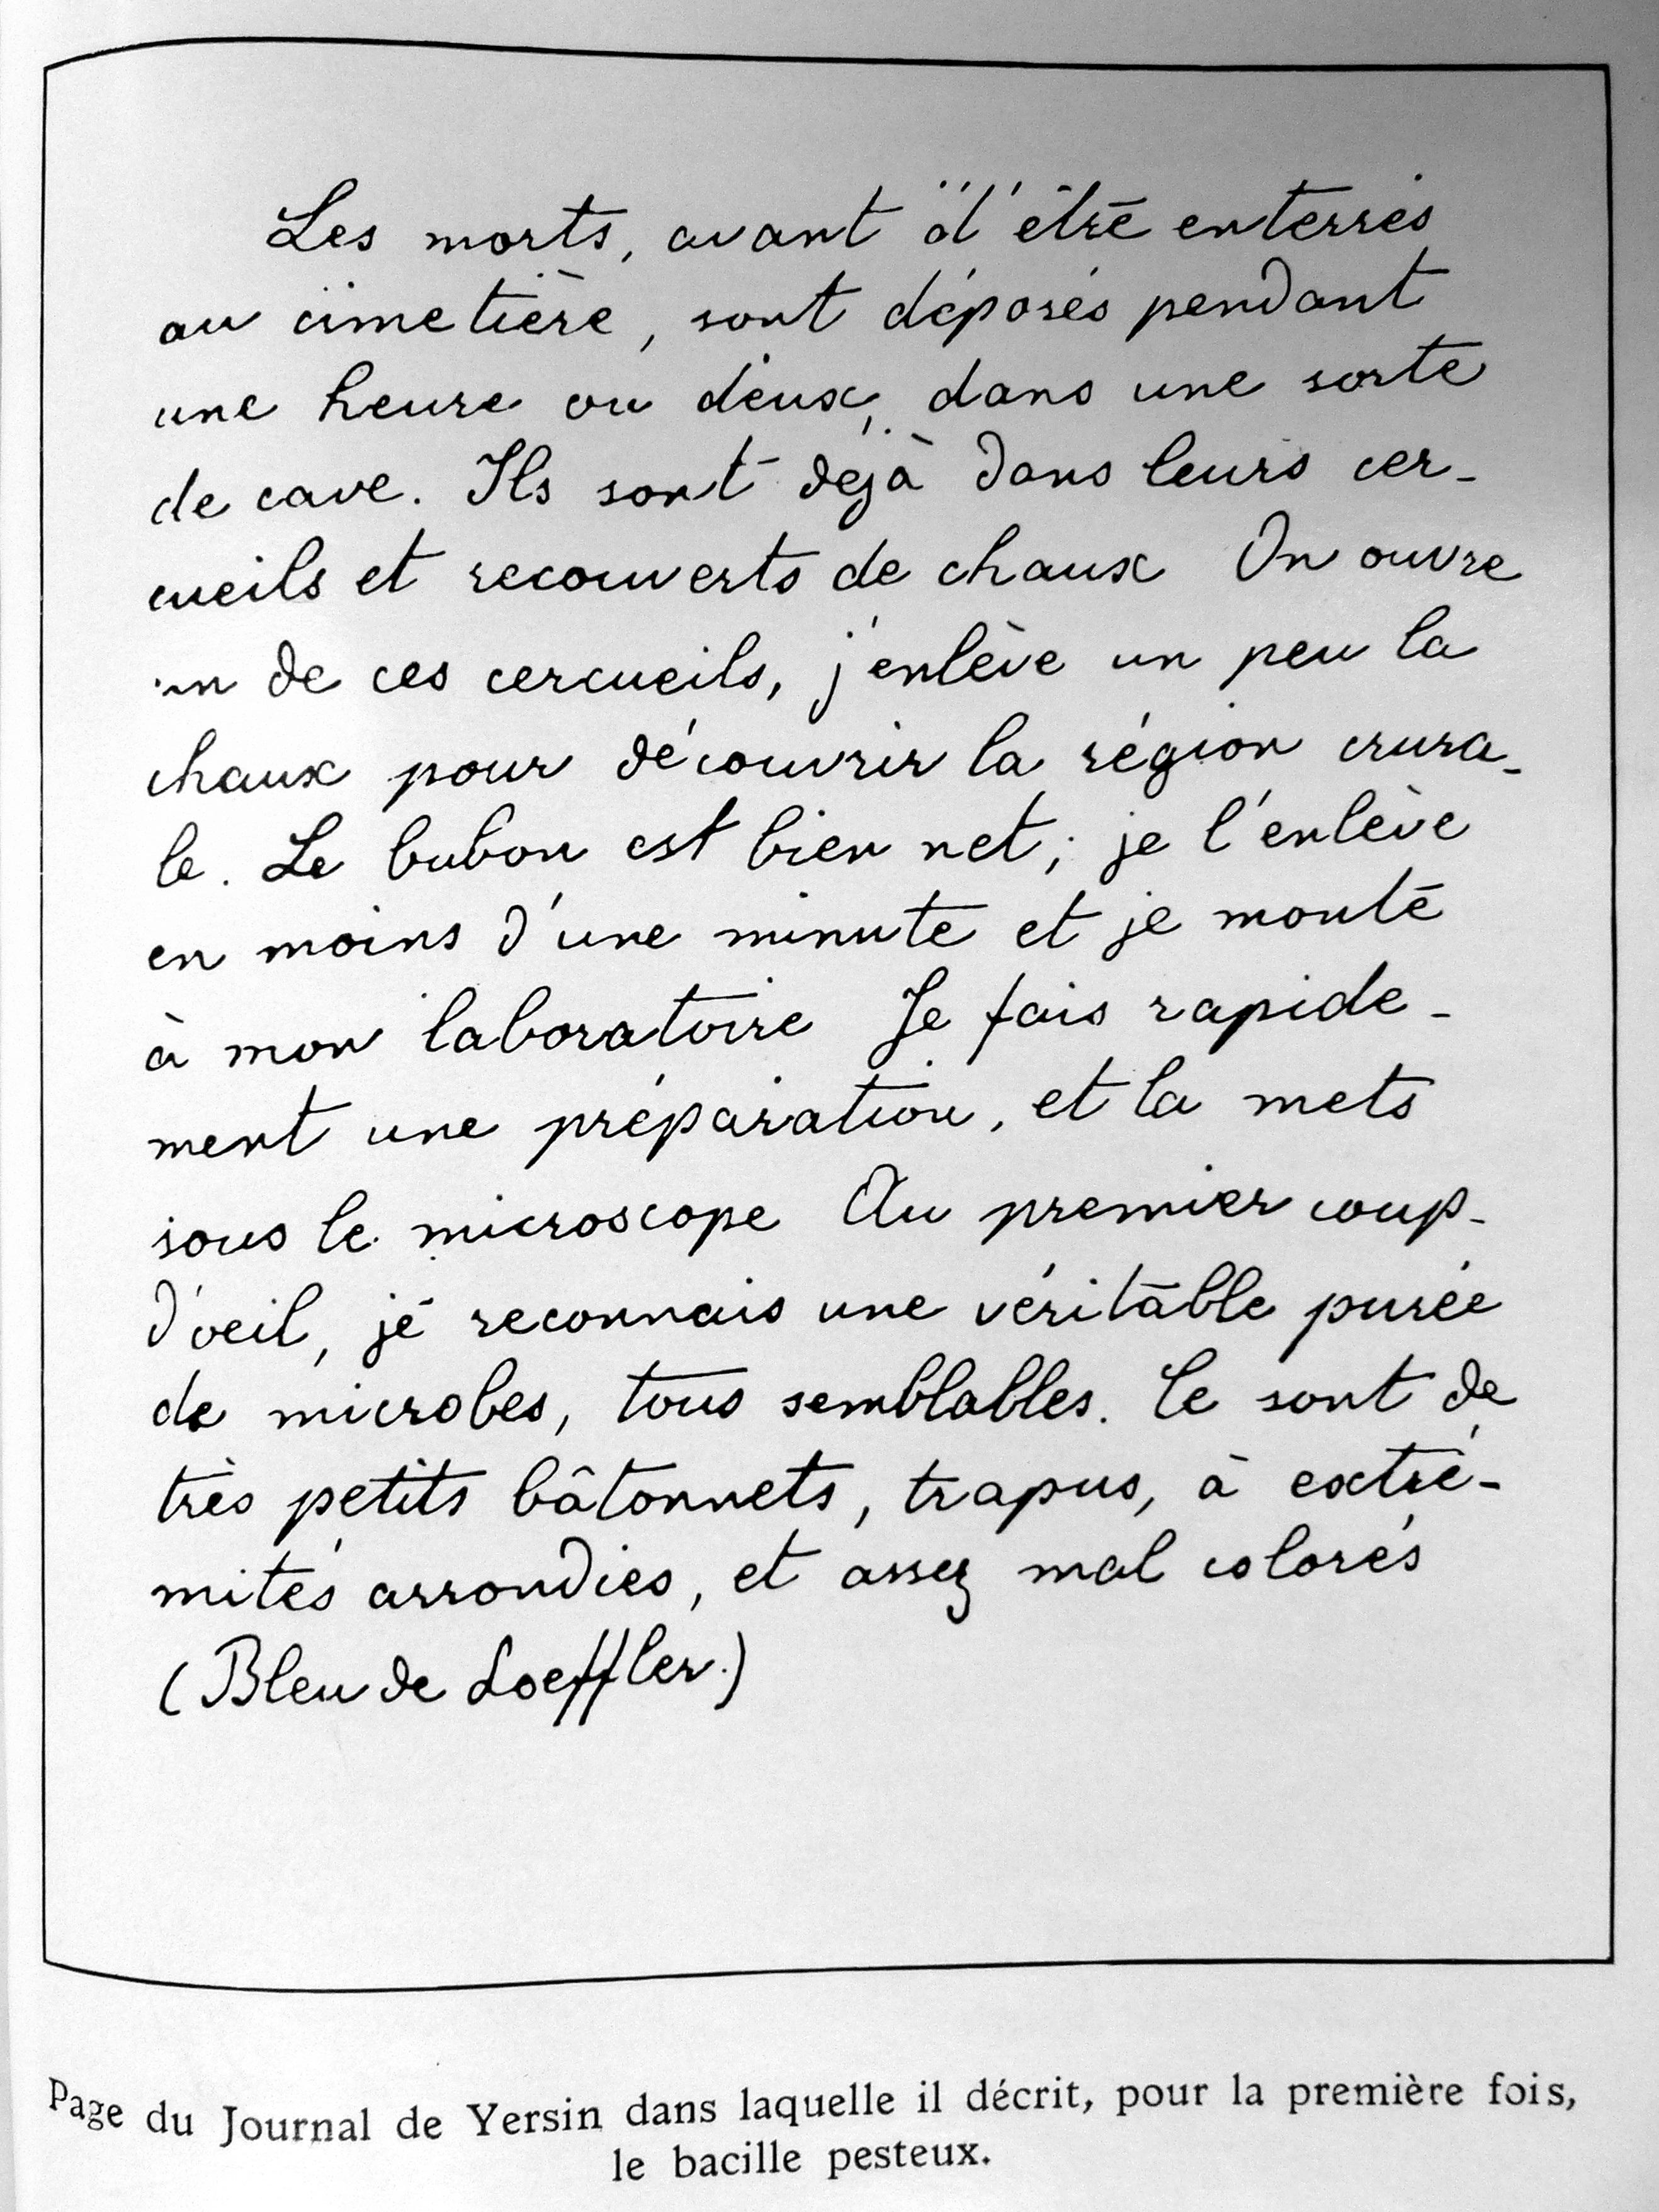 Les morts, avant d'être enterrés
au cimetière, sont déposés pendant
une heure ou deux, dans une sorte
de cave. Ils sont déjà dans leurs cer-
cueils et recouverts de chaux On ouvre
un de ces cercueils, j'enlève un peu la
chaux pour découvrir la région crura-
le. Le bubon est bien net; je l'enlève
en moins d'une minute et je monte
à mon laboratoire Je fais rapide-
ment une préparation, et la mets
sous le microscope Au premier coup-
d'oeil, je reconnais une véritable purée
de microbes, tous semblables. Ce sont de
très petits bâtonnets, trapus, à extré-
mités arrondies, et assez mal colorés
(Bleu de Loeffler.)
Page du Journal de Yersin dans laquelle il décrit, pour la première fois,
le bacille pesteux.